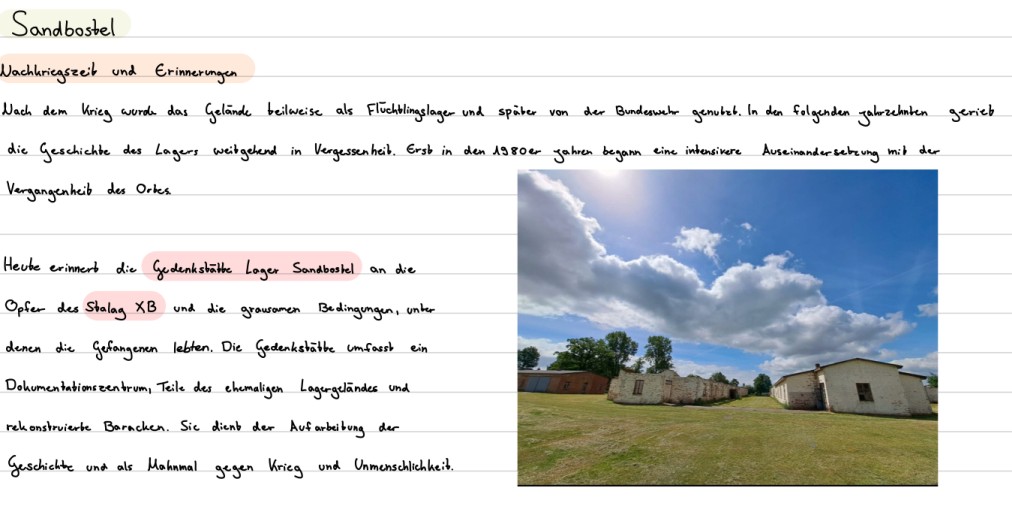 Sandbostel
Nachkriegszeit und Erinnerungen
Nach dem Krieg wurde das Gelände teilweise als Flüchtlingslager und später von der Bundeswehr genutzt. In den folgenden Jahrzehnten geriet
die Geschichte des Lagers weitgehend in Vergessenheit. Erst in den 1980er Jahren begann eine intensivere Auseinandersetzung mit der
Vergangenheit des Ortes.
Heute erinnert die Gedenkstätte Lager Sandbostel an die
Opfer des Stalag XB und die grausamen Bedingungen, unter
denen die Gefangenen lebten. Die Gedenkstätte umfasst ein
Dokumentationszentrum, Teile des ehemaligen Lagergeländes und
rekonstruierte Baracken. Sie dient der Aufarbeitung der
Geschichte und als Mahnmal gegen Krieg und Unmenschlichkeit.